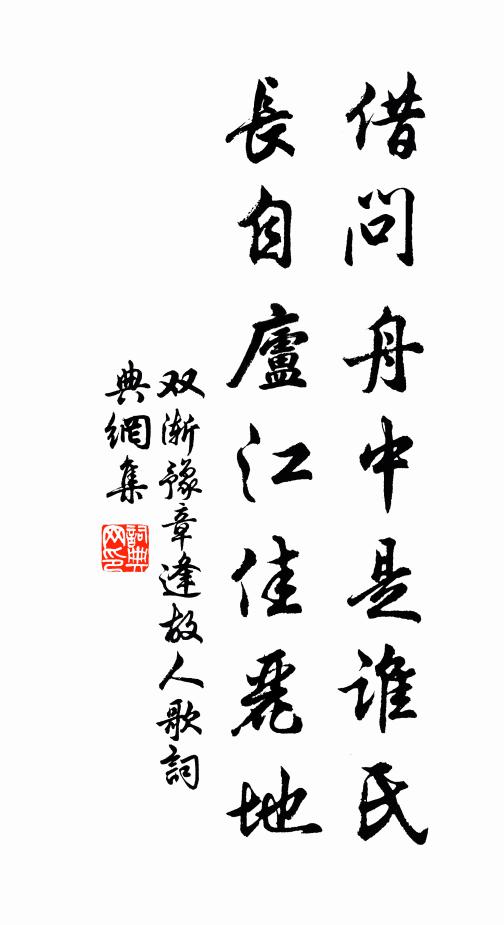 借問舟中是誰氏
長自廬江佳麗地
双漸豫章逢故人歌詞
典網集
詞典網印